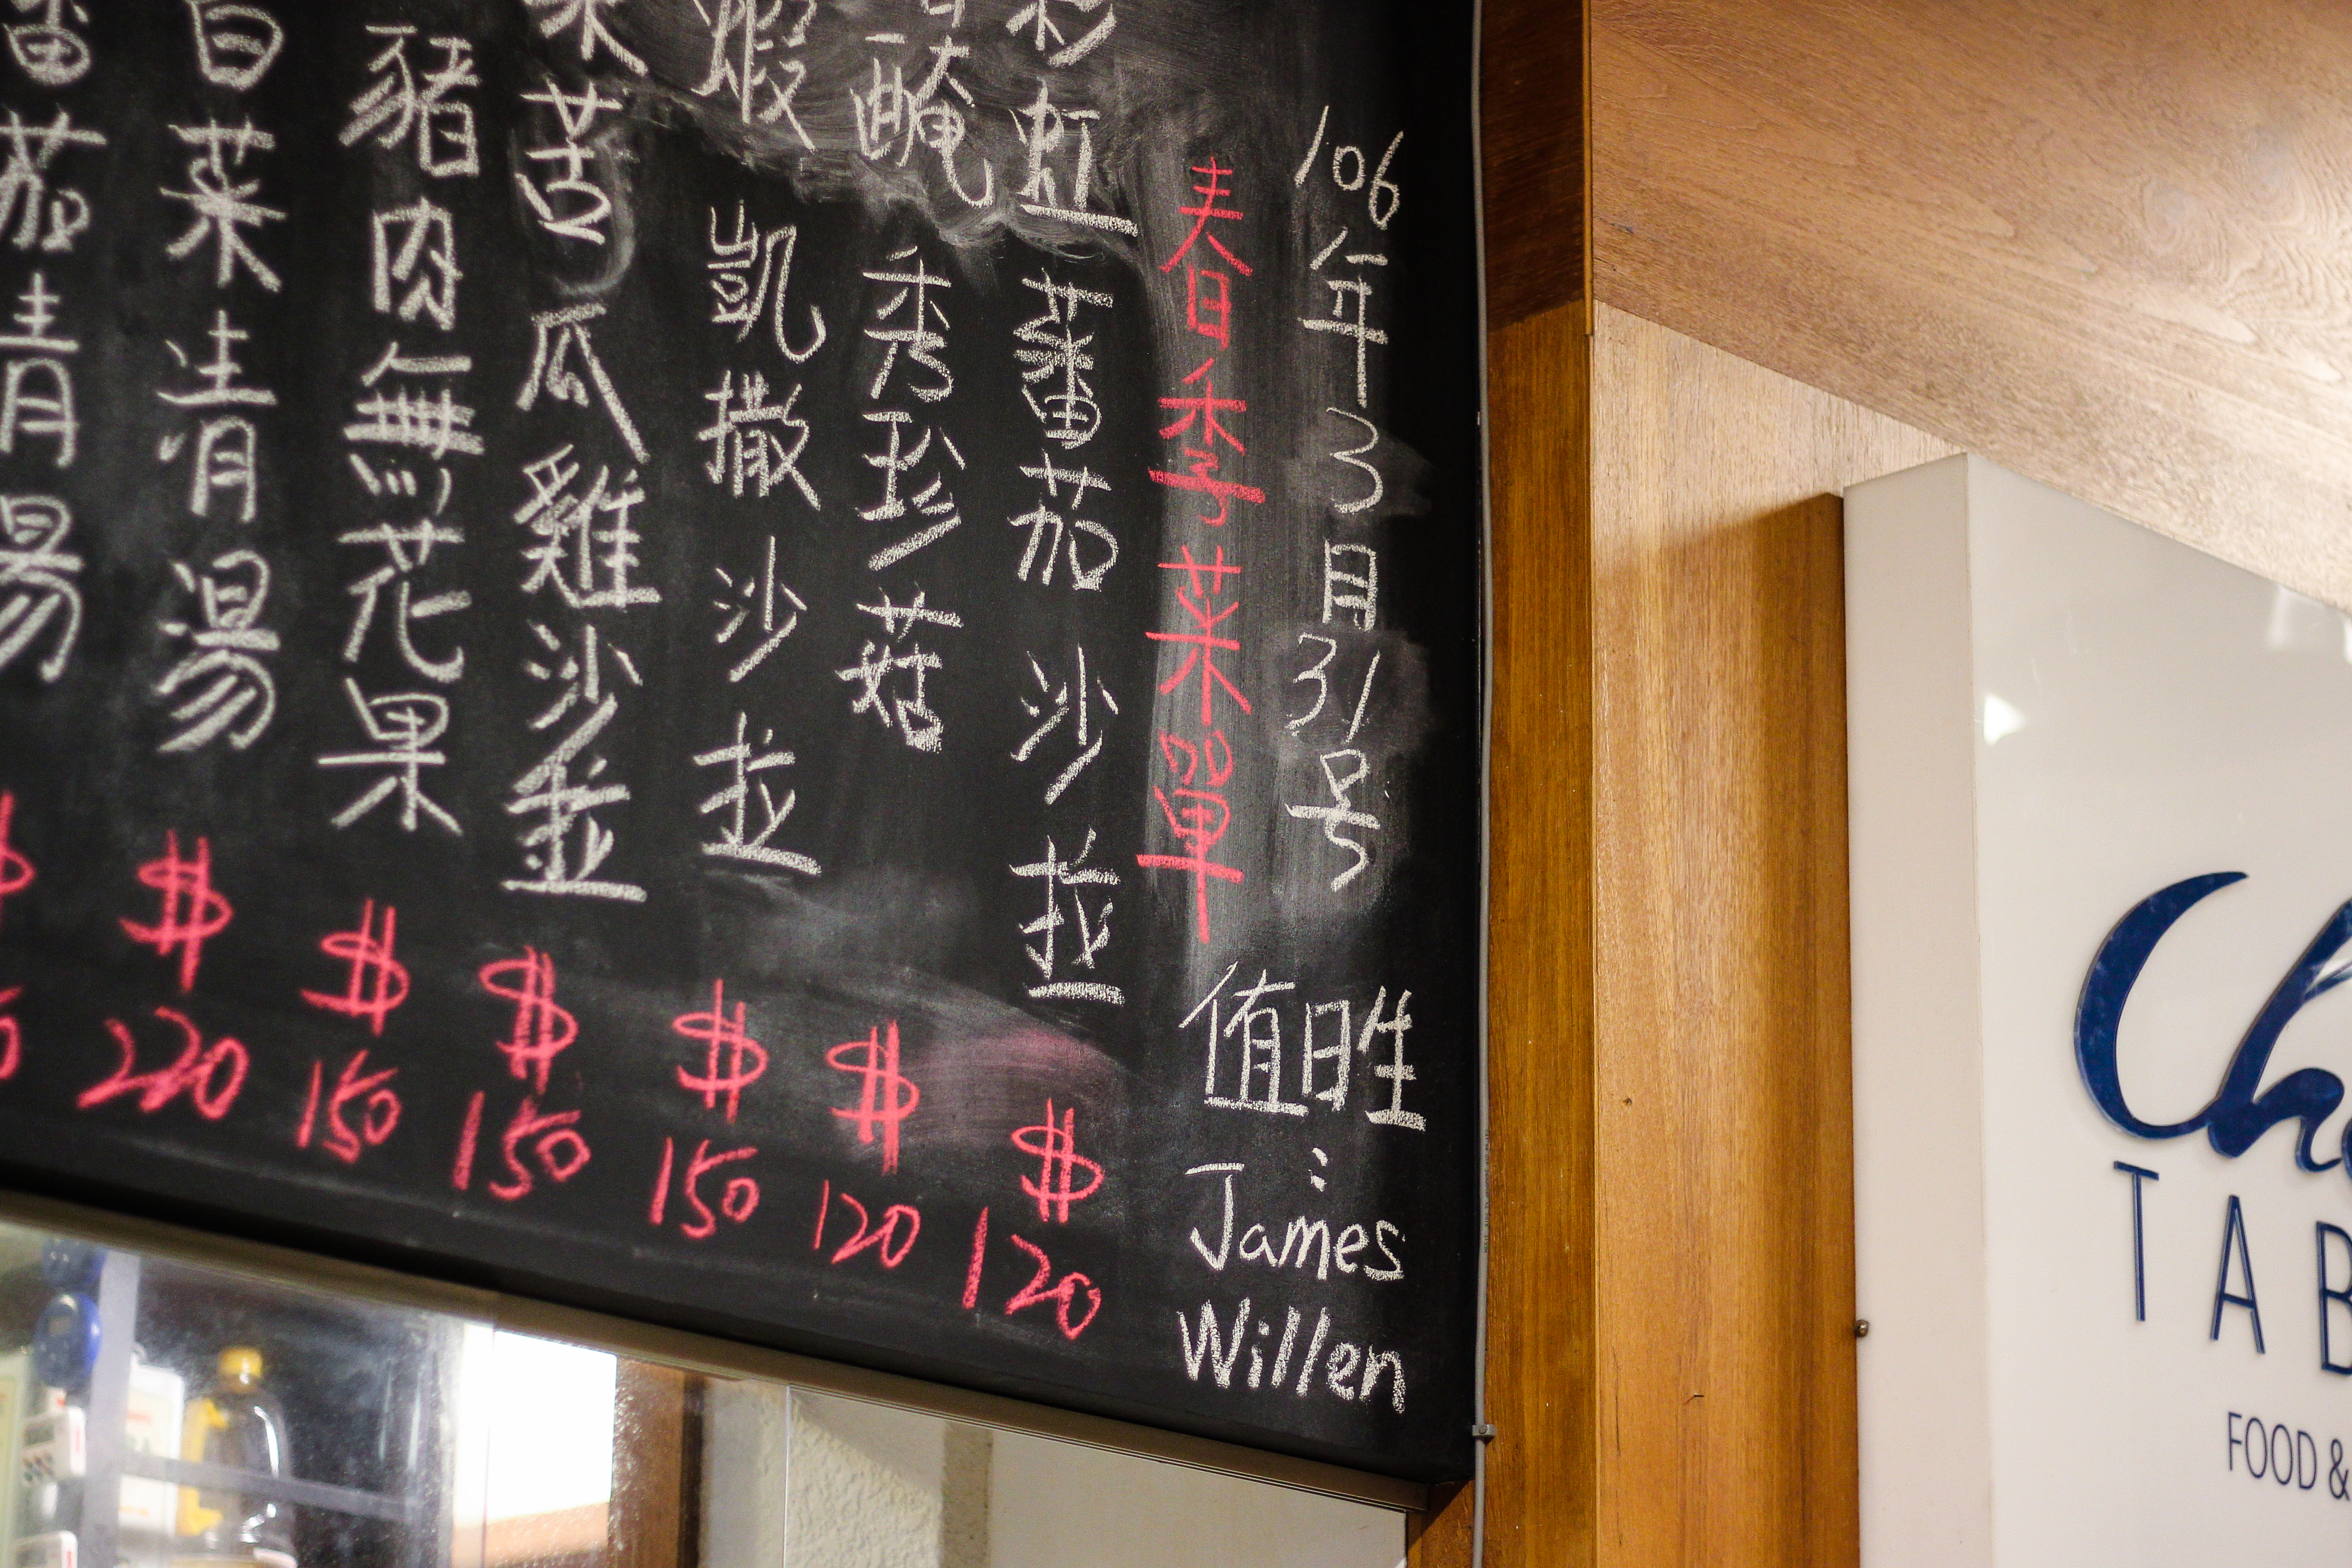 106年3月31号
值日生：
James
Willen
春季菜單
虹蕃茄沙拉
$120
醃秀珍菇
$120
蝦凱撒沙拉
$150
苦瓜雞沙拉
$150
豬肉無花果
$150
白菜清湯
$220
番茄清湯
$
TAB
FOOD &